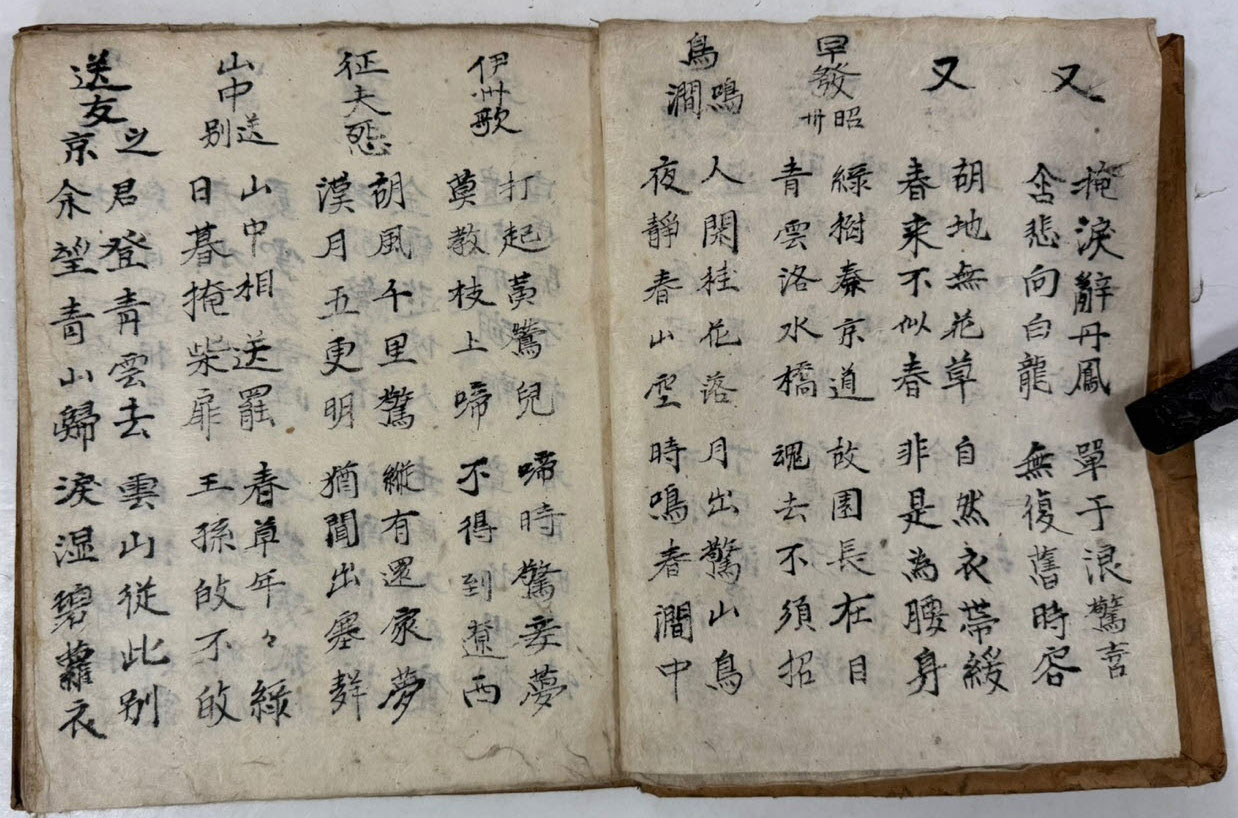 又
掩淚辭丹鳳　單于浪驚喜
含悲向白龍　無復舊時容
又
胡地無花草　自然衣帶緩
春來不似春　非是為腰身
早發昭州
綠樹秦京道　故園長在目
青雲洛水橋　魂去不須招
鳥鳴澗
人閑桂花落　月出驚山鳥
夜靜春山空　時鳴春澗中
伊州歌
打起黃鶯兒　啼時驚妾夢
莫教枝上啼　不得到遼西
征夫怨
胡風千里驚　縱有還家夢
漢月五更明　猶聞出塞聲
山中送別
山中相送罷　春草年々綠
日暮掩柴扉　王孫敀不敀
送友之京
君登青雲去　雲山從此別
余望青山歸　淚湿碧蘿衣